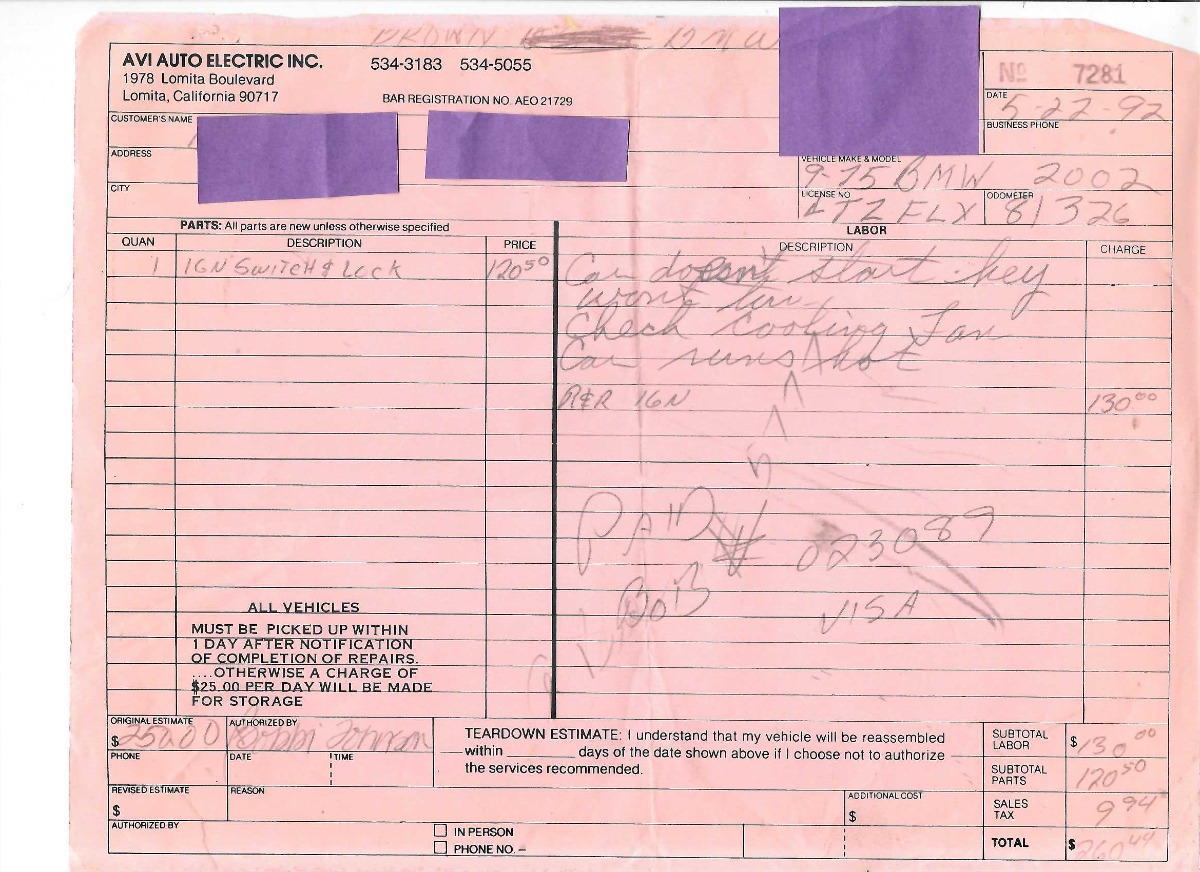 BROWN BMW
AVI AUTO ELECTRIC INC. 534-3183 534-5055
1978 Lomita Boulevard
Lomita, California 90717
BAR REGISTRATION NO. AEO 21729
Nº 7281
DATE
5-22-92
CUSTOMER'S NAME
BUSINESS PHONE
ADDRESS
VEHICLE MAKE & MODEL
9-75 BMW 2002
CITY
LICENSE NO
ODOMETER
LTZ FLX 81326
PARTS: All parts are new unless otherwise specified
LABOR
QUAN DESCRIPTION PRICE
DESCRIPTION CHARGE
1 IGN SWITCH & LOCK 120 50
Car doesn't start key
wont turn
Check cooling Fan
Car runs hot
R&R IGN 130 00
PAID # 023089
BOB VISA
ALL VEHICLES
MUST BE PICKED UP WITHIN
1 DAY AFTER NOTIFICATION
OF COMPLETION OF REPAIRS.
....OTHERWISE A CHARGE OF
$25.00 PER DAY WILL BE MADE
FOR STORAGE
ORIGINAL ESTIMATE
$ 250.00
AUTHORIZED BY
Bobbi Johnson
PHONE
DATE
TIME
TEARDOWN ESTIMATE: I understand that my vehicle will be reassembled
within ________ days of the date shown above if I choose not to authorize
the services recommended.
SUBTOTAL LABOR $ 130 00
SUBTOTAL PARTS 120 50
REVISED ESTIMATE
$
REASON
ADDITIONAL COST
$
SALES TAX 9 94
AUTHORIZED BY
IN PERSON
PHONE NO. –
TOTAL $ 260 44